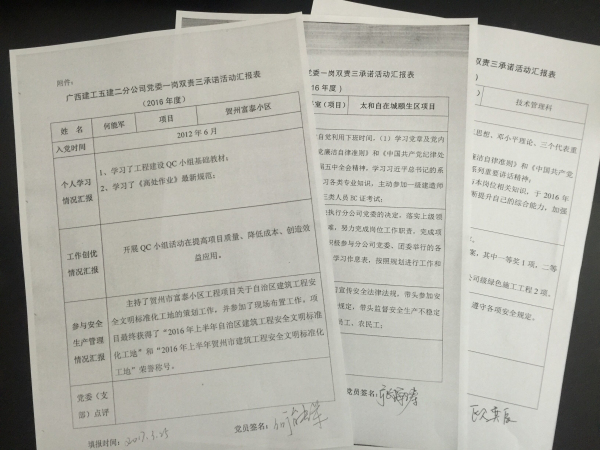 附件:
广西建工五建二分公司党委一岗双责三承诺活动汇报表
（2016 年度）
姓 名
项目
贺州富泰小区
入党时间
2012 年 6 月
个人学习
情况汇报
1、学习了工程建设 QC 小组基础教材；
2、学习了《高处作业》最新规范；
工作创优
情况汇报
开展 QC 小组活动在提高项目质量、降低成本、创造效
益应用。
参与安全
生产管理
情况汇报
主持了贺州市富泰小区工程项目关于自治区建筑工程安
全文明标准化工地的策划工作，并参加了现场布置工作，项
目最终获得了“2016 年上半年自治区建筑工程安全文明标准
化工地”和“2016 年上半年贺州市建筑工程安全文明标准化
工地”荣誉称号。
党委（支
部）点评
填报时间：2017.3.25
党员签名：
党委一岗双责三承诺活动汇报表
016 年度）
室（项目）
太和自在城颐生区项目
自觉利用下班时间，（1）学习党章及党内
党廉洁自律准则》和《中国共产党纪律处
届五中全会精神，学习习近平总书记的系
习各类专业知识，主动参加一级建造师
三类人员 BC 证考试；
执行分公司党委的决定，落实上级项
准，努力完成岗位工作职责，完成项
积极参与分公司党委、团委举行的各
学习作息表，按照规划进行工作和
宣传安全法律法规，带头参加安
规定，带头监督安全生产不稳定
员工、农民工；
党员签名：
双责三承诺活动汇报表
）
技术管理科
思想、邓小平理论，三个代表重
洁自律准则》和《中国共产党
系列重要讲话精神。
与本岗位相关知识，于 2016 年
断提升自己的综合能力，加强
案，其中一等奖 1 项，二等
公司级绿色施工工程 2 项。
遵守各项安全规定。